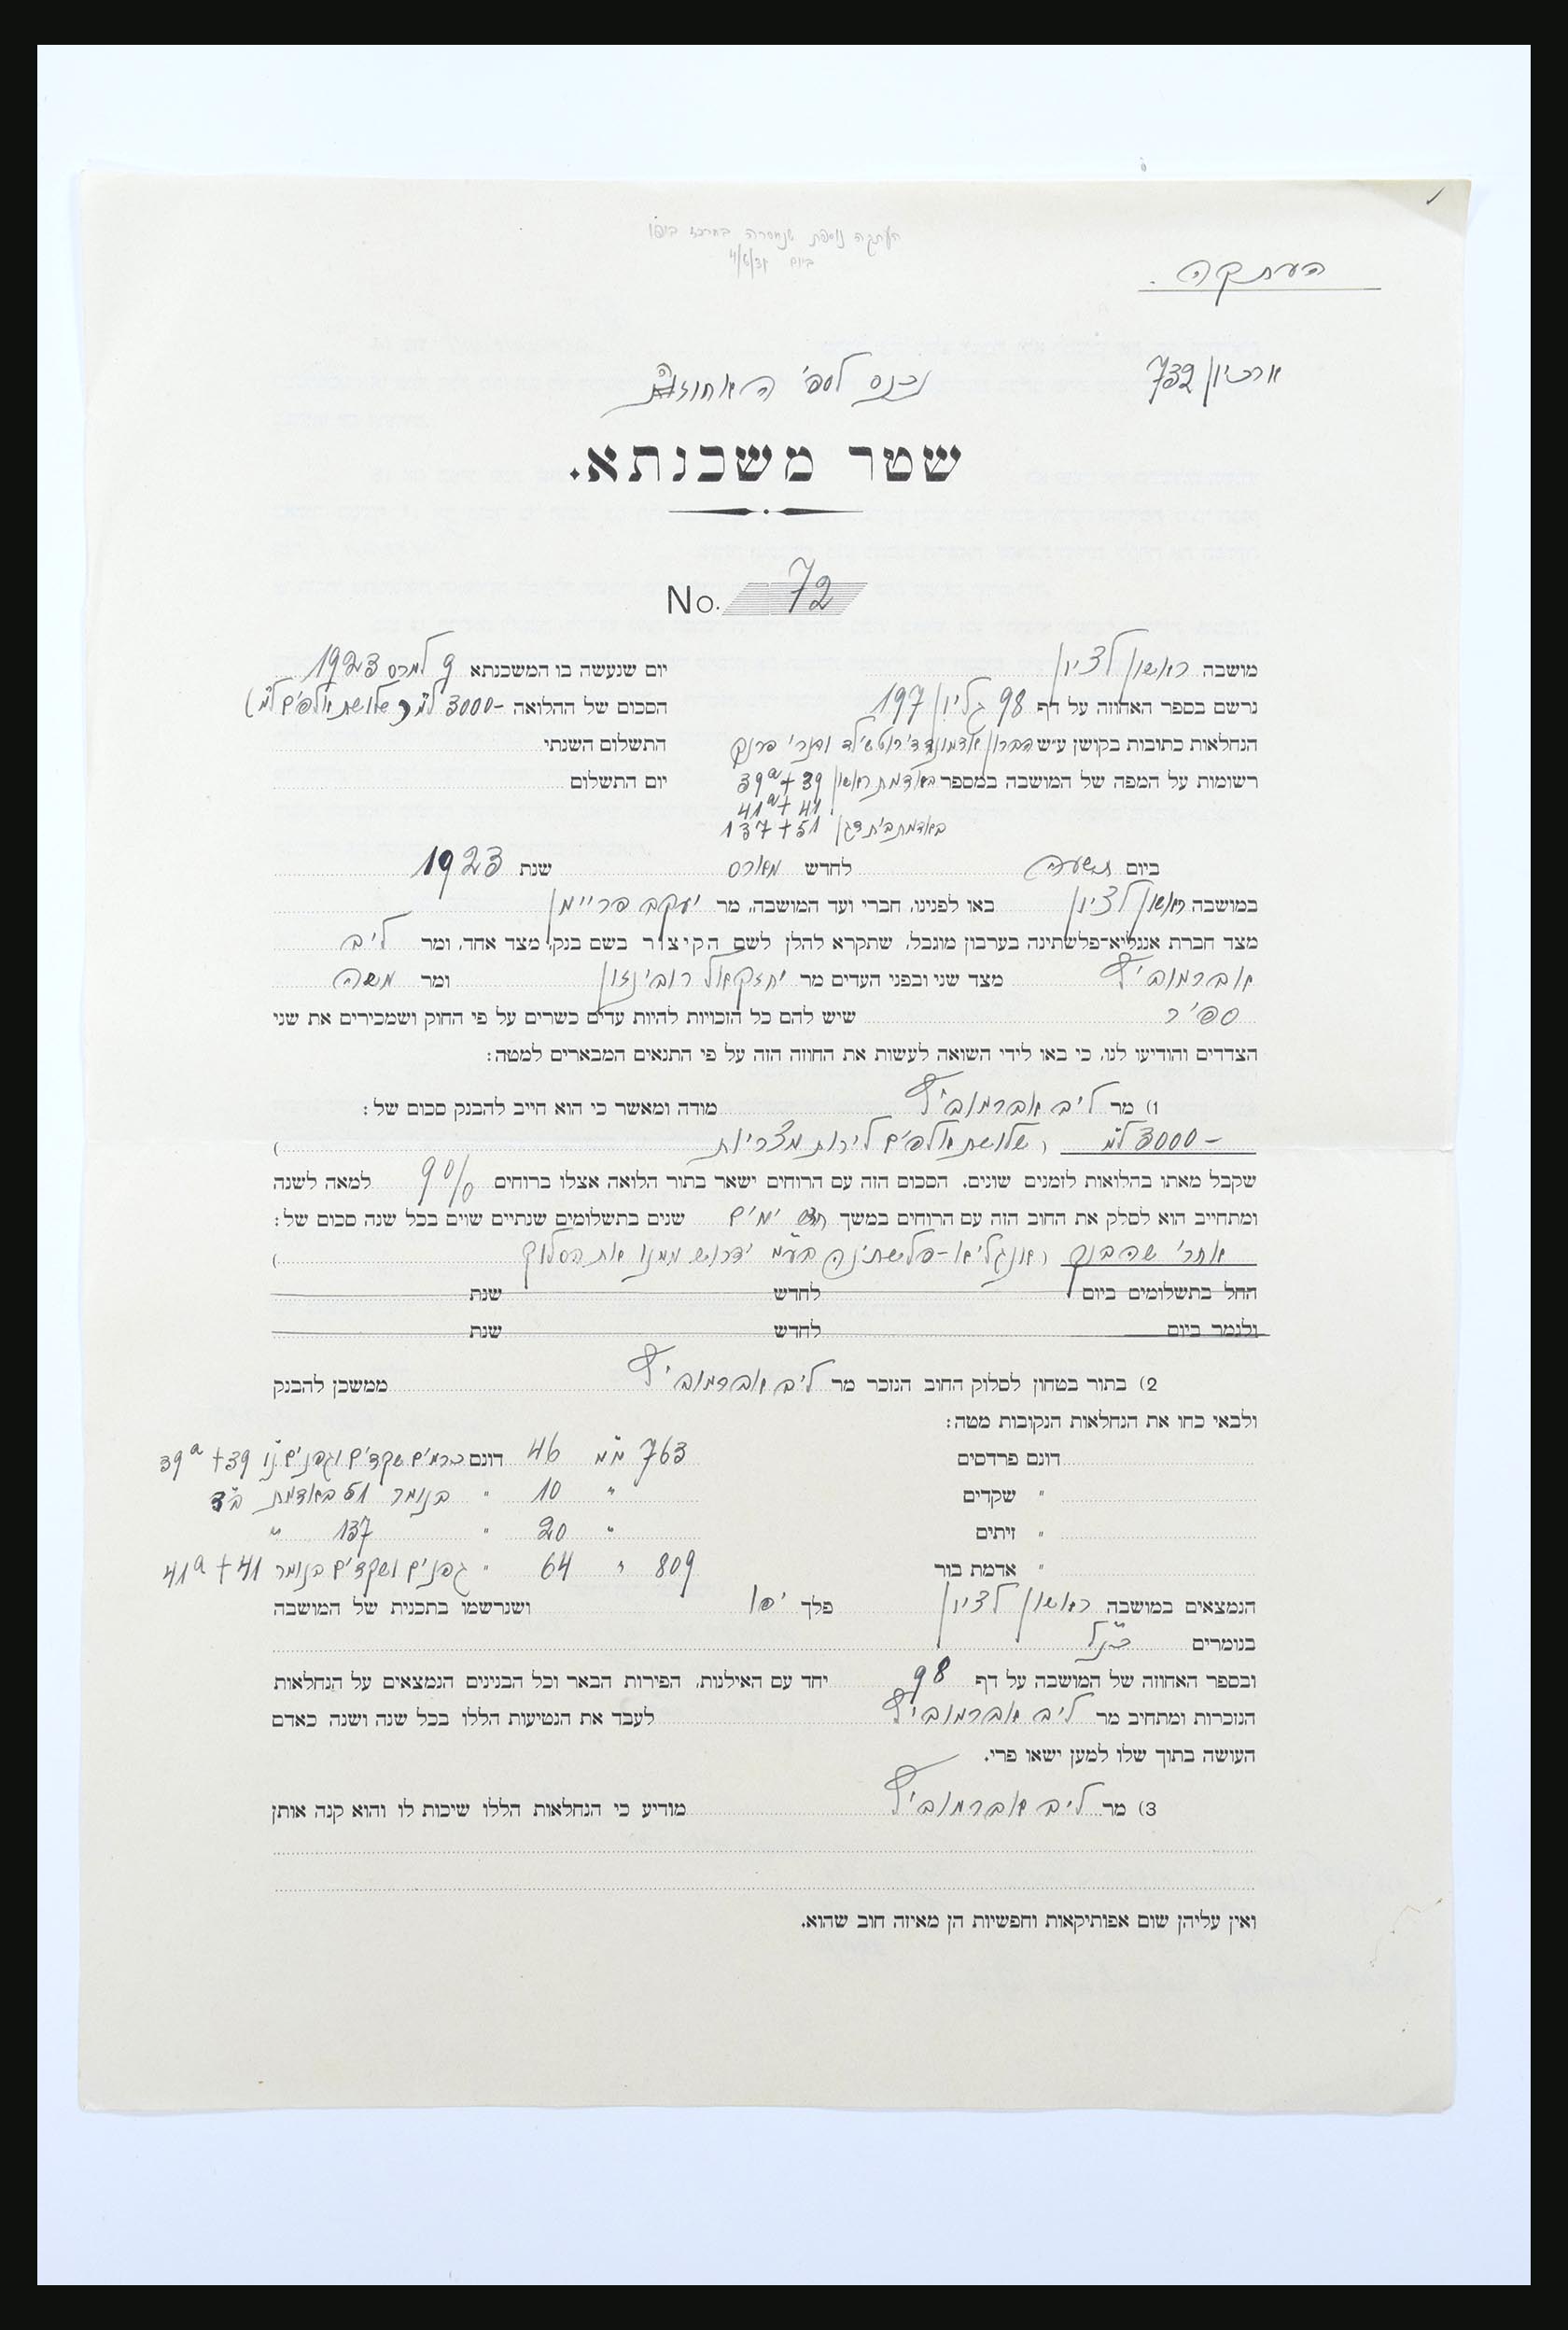 העתקה נוספת שנמסרה במרכז ביפו
ביום 4/6/31
העתקה.
ארכיון 732
נכנס לספ' האחוזה
שטר משכנתא.
No. 72
מושבה ראשון לציון יום שנעשה בו המשכנתא 9 למרס 1923
נרשם בספר האחוזה על דף 98 גליון 197 הסכום של ההלואה -3000 למ"צ (שלושת אלפים למ"צ)
הנחלאות כתובות בקושן ע״ש הברון אדמונד די רוטשילד והנרי פרנק התשלום השנתי
רשומות על המפה של המושבה במספר באדמת ראשון 39 + 39a יום התשלום
41 + 41a
באדמת בית דגן 51 + 137
ביום תשעה לחדש מארס שנת 1923
במושבה ראשון לציון באו לפנינו, חברי ועד המושבה, מר יעקב פריימן
מצד חברת אנגליא־פלשתינה בערבון מוגבל, שתקרא להלן לשם הקיצור בשם בנק, מצד אחד, ומר ליב
אברמוביץ מצד שני ובפני העדים מר יחזקאל רובינזון ומר משה
ספיר שיש להם כל הזכויות להיות עדים כשרים על פי החוק ושמכירים את שני
הצדדים והודיעו לנו, כי באו לידי השואה לעשות את החוזה הזה על פי התנאים המבארים למטה:
1) מר ליב אברמוביץ מודה ומאשר כי הוא חייב להבנק סכום של:
-3000 למ"צ (שלושת אלפים לירות מצריות)
שקבל מאתו בהלואות לזמנים שונים. הסכום הזה עם הרוחים ישאר בתור הלואה אצלו ברוחים 9% למאה לשנה
ומתחייב הוא לסלק את החוב הזה עם הרוחים במשך חדש ימים שנים בתשלומים שנתיים שוים בכל שנה סכום של:
אחרי שהבנק (אנגליא-פלישתינה בע"מ ידרוש ממנו את הסלוק)
החל בתשלומים ביום לחדש שנת
ולגמר ביום לחדש שנת
2) בתור בטחון לסלוק החוב הנזכר מר ליב אברמוביץ ממשכן להבנק
ולבאי כחו את הנחלאות הנקובות מטה:
דונם פרדסים 763 מ"מ 46 דונם כרמים שקדים וגפנים נו' 39 + 39a
" שקדים " 10 " בנומר 51 באדמת ב"ד
" זיתים " 20 " 137 "
" אדמת בור 809 " 64 " גפנים ושקדים בנומר 41 + 41a
הנמצאים במושבה ראשון לציון פלך יפו ושנרשמו בתכנית של המושבה
בנומרים כנ"ל
ובספר האחוזה של המושבה על דף 98 יחד עם האילנות, הפירות הבאר וכל הבנינים הנמצאים על הנחלאות
הנזכרות ומתחיב מר ליב אברמוביץ לעבד את הנטיעות הללו בכל שנה ושנה כאדם
העושה בתוך שלו למען ישאו פרי.
3) מר ליב אברמוביץ מודיע כי הנחלאות הללו שיכות לו והוא קנה אותן
ואין עליהן שום אפותיקאות וחפשיות הן מאיזה חוב שהוא.